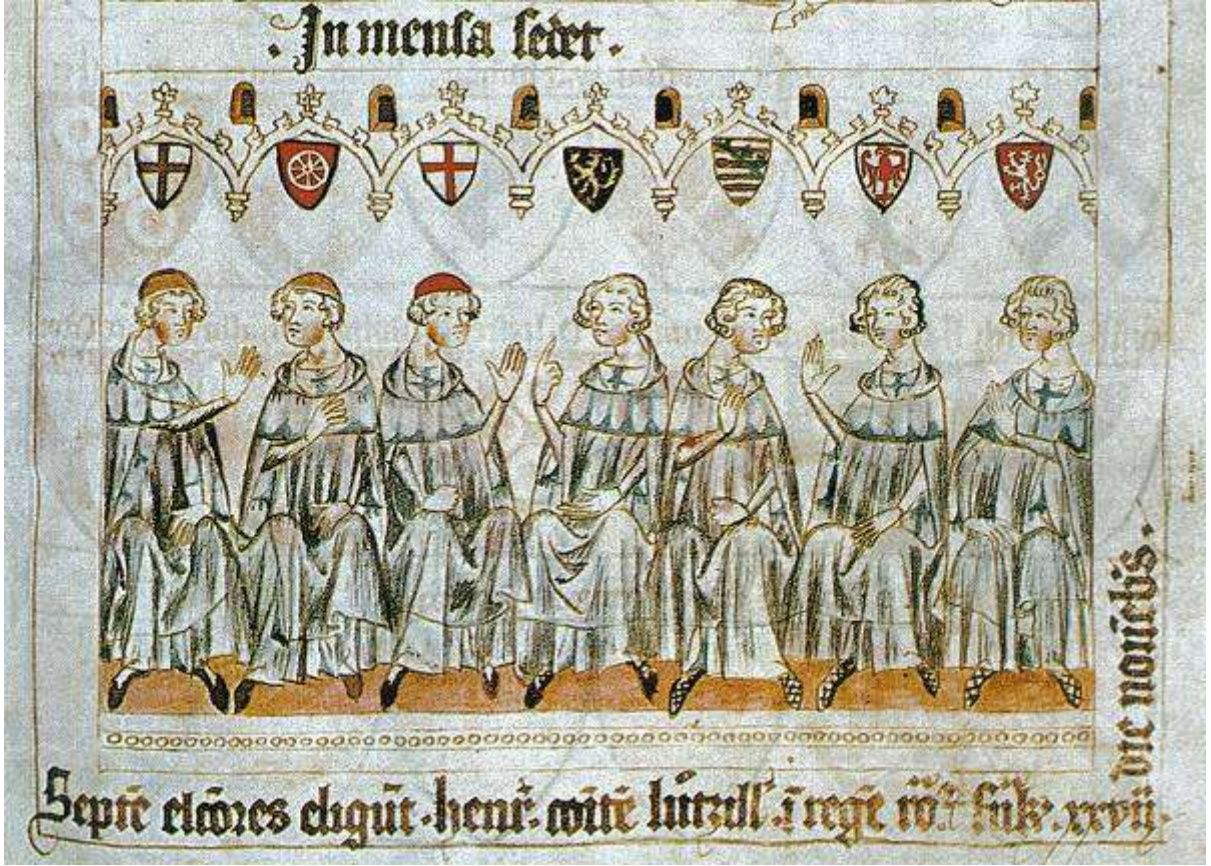 . In mensa sedet .
Septē elcōres eligūt . henr̄ . comitē luczll' ī regē ro᷑ frāk . xxvii .
die novēbs̄ .